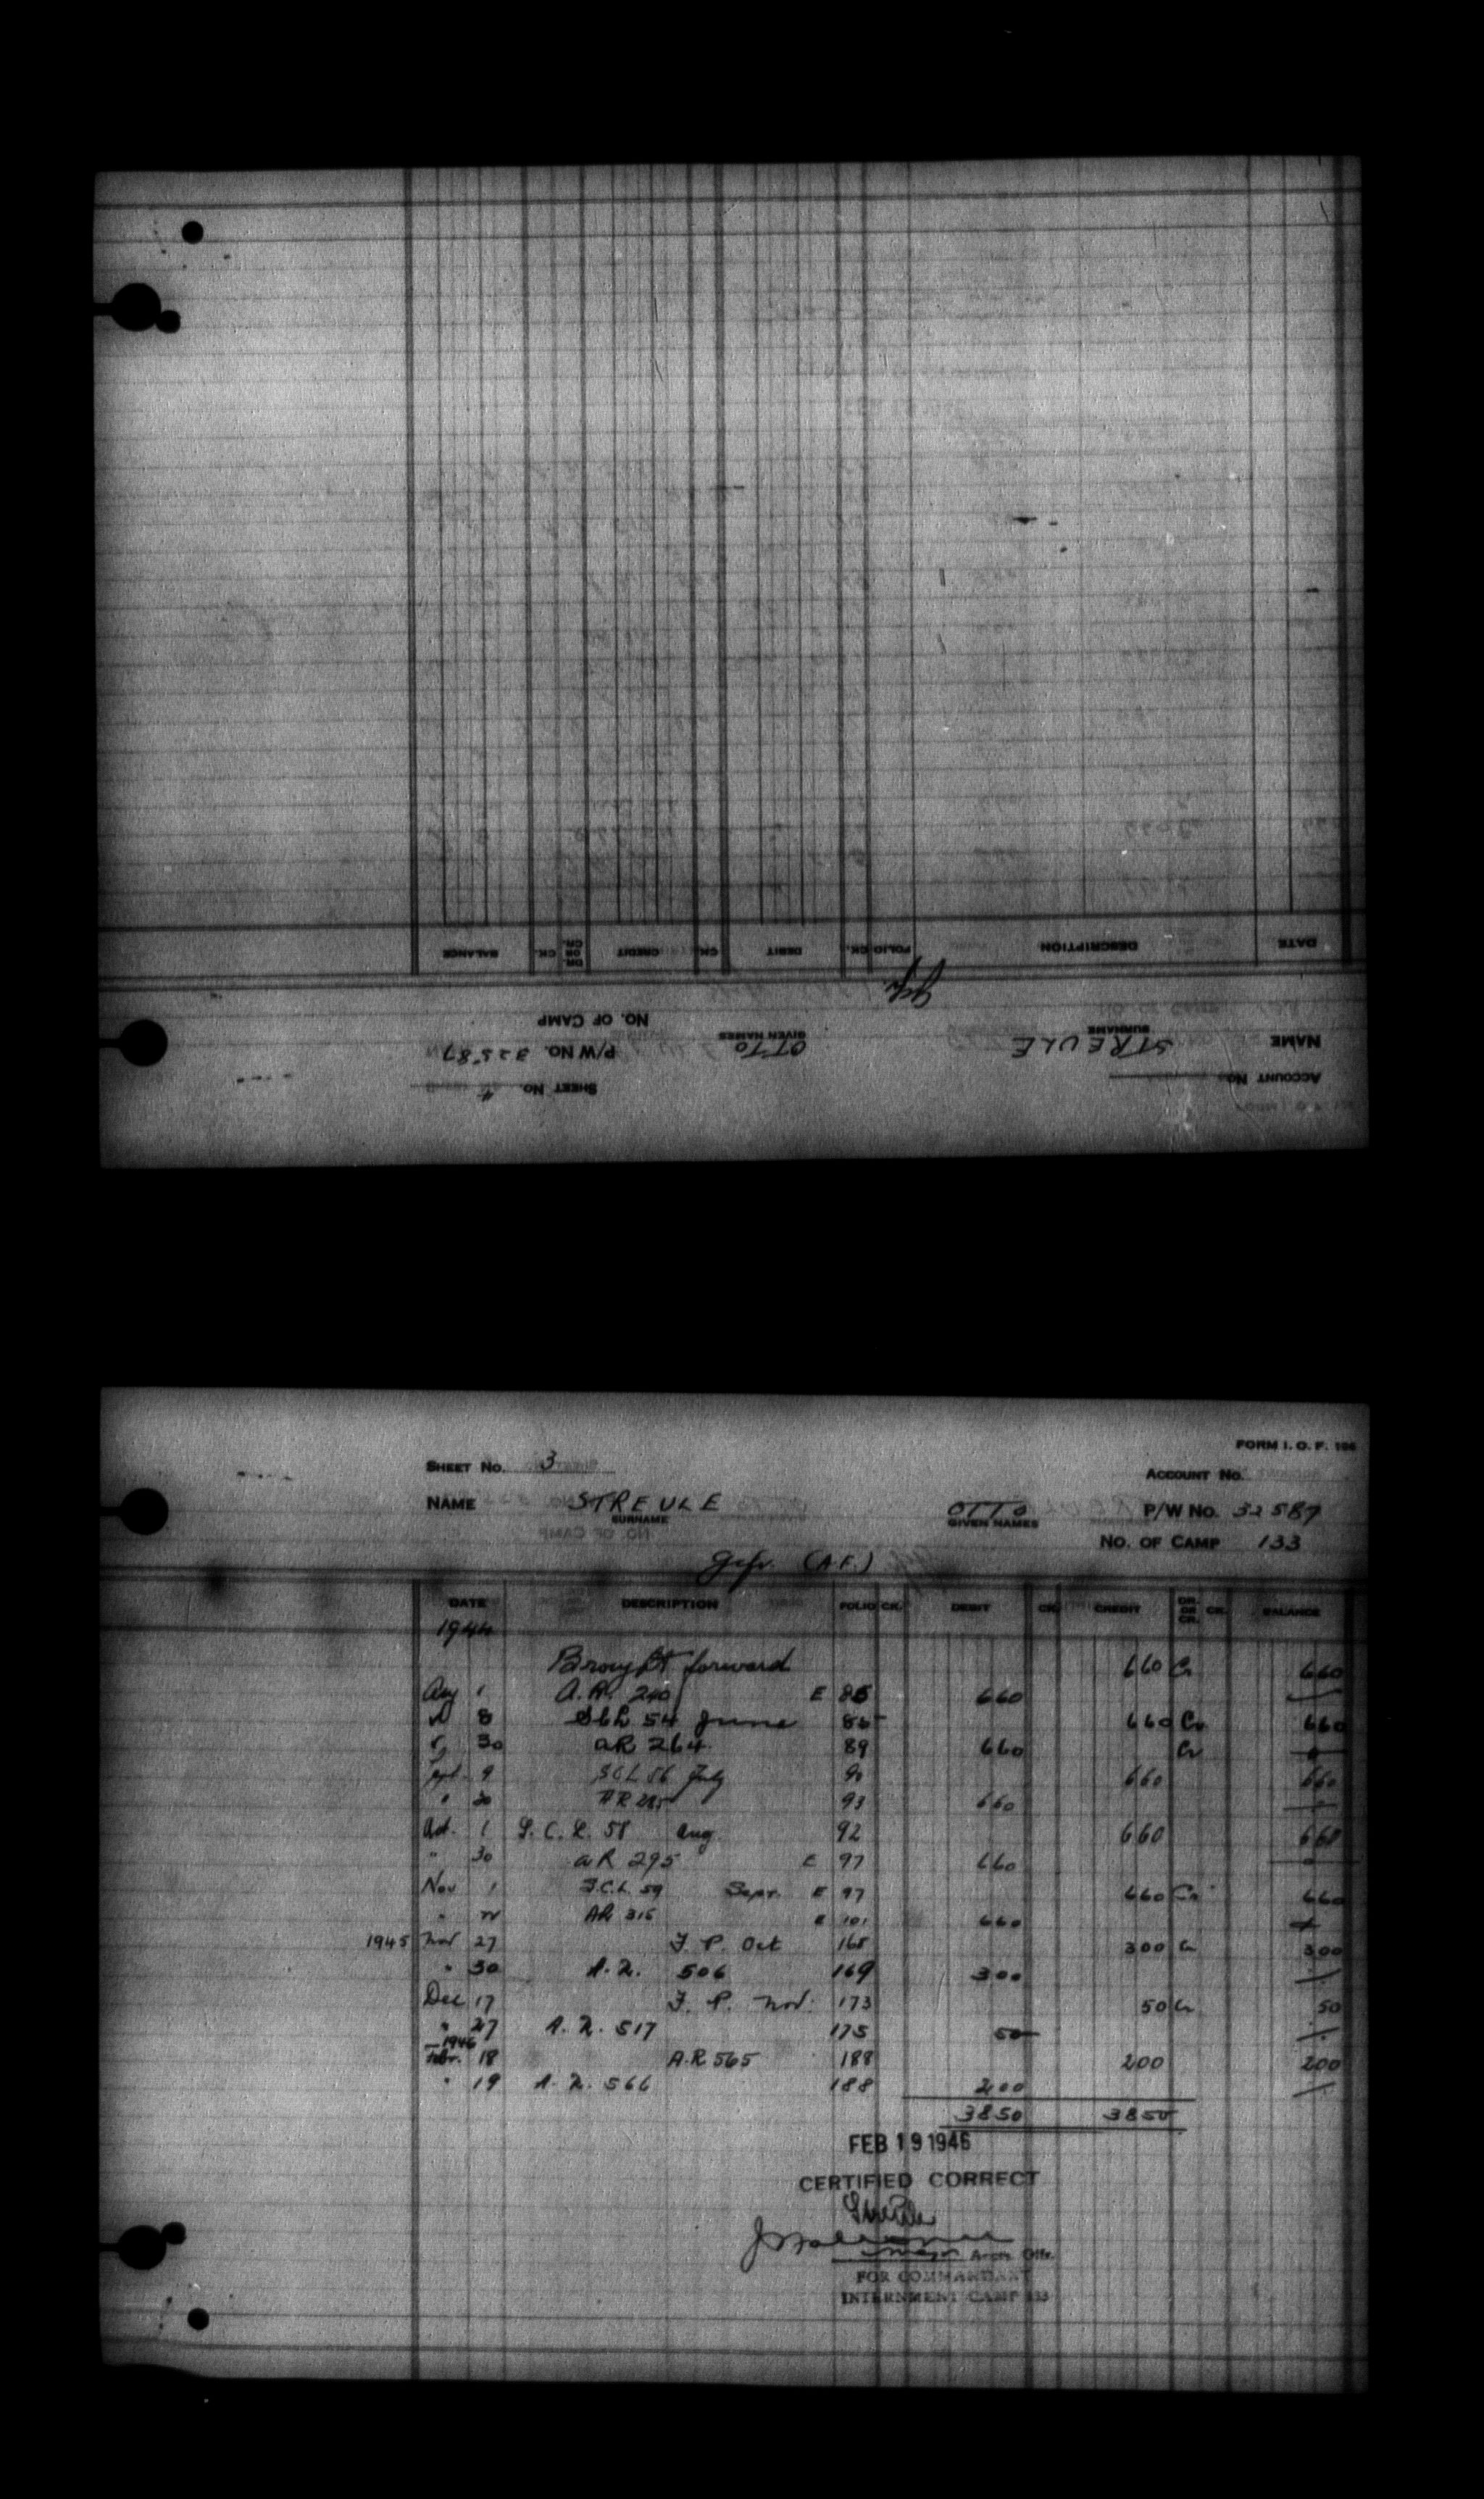 SHEET No. 4
ACCOUNT No.
NAME STREULE OTTO P/W No. 32587
SURNAME GIVEN NAMES
NO. OF CAMP
Gefr.
DATE DESCRIPTION FOLIO CK. DEBIT CK. CREDIT DR. OR CR. CK. BALANCE
FORM I. O. F. 194
SHEET No. 3 ACCOUNT No.
NAME STREULE OTTO P/W No. 32587
SURNAME GIVEN NAMES
No. OF CAMP 133
Gefr. (A.F.)
DATE DESCRIPTION FOLIO CK. DEBIT CK. CREDIT DR. OR CR. CK. BALANCE
1944
Brought forward 660 Cr 660
Aug 1 A.R. 240 E 85 660
8 54 June 86 660 Cr 660
30 AR 264 89 660 Cr
Sept. 9 SCL 56 July 90 660 660
" 30 AR 93 660
Oct. 1 S.C.L. 58 Aug. 92 660 660
" 30 AR 295 E 97 660
Nov 1 S.C.L. 59 Sept. E 97 660 Cr 660
" AR 316 E 101 660
1945 Nov 27 F. P. Oct 168 300 Cr 300
" 30 A.R. 506 169 300
Dec 17 F. P. Nov. 173 50 Cr 50
" 27 A.R. 517 175 50
1946
Feb. 18 A.R 565 188 200 200
" 19 A.R. 566 188 200
3850 3850
FEB 19 1946
CERTIFIED CORRECT
Streule
Major Accts. Offr.
FOR COMMANDANT
INTERNMENT CAMP 133